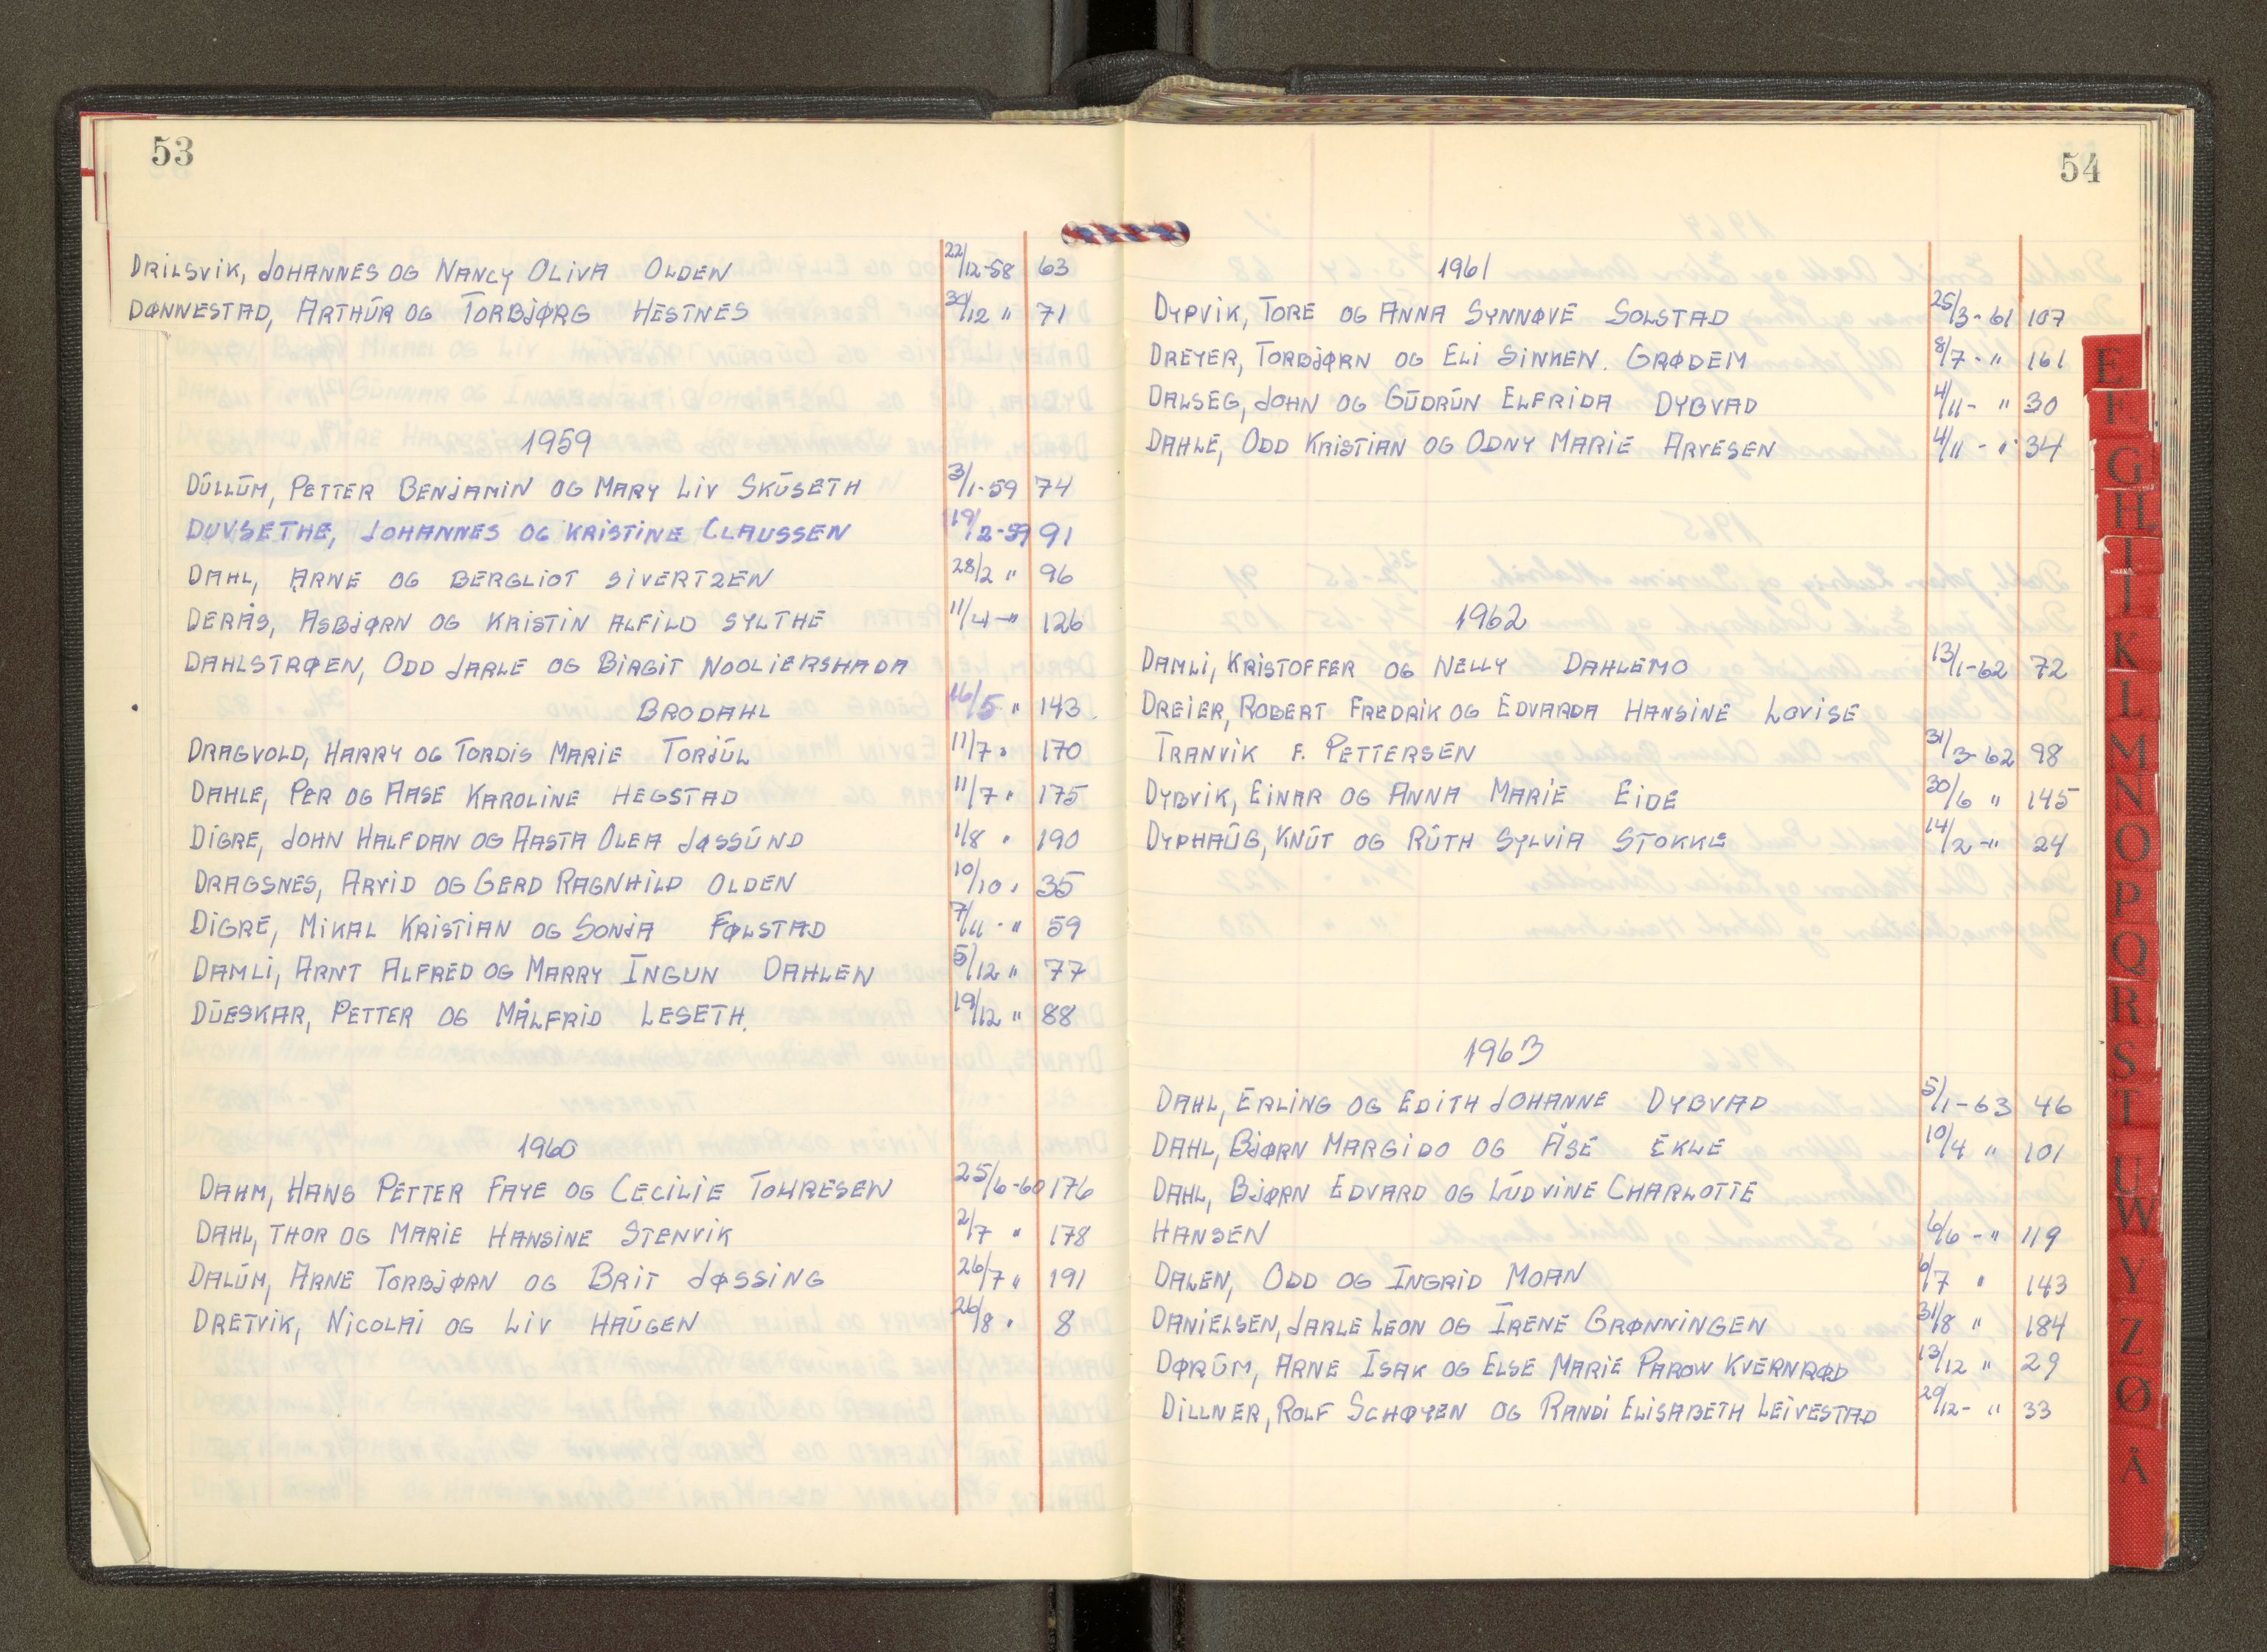 53
DRILSVIK, JOHANNES OG NANCY OLIVA OLDEN 22/12-58 63
DØNNESTAD, ARTHŪR OG TORBJØRG HESTNES /12 " 71
1959
DŪLLŪM, PETTER BENJAMIN OG MARY LIV SKŪSETH 3/1-59 74
DUVSETHE, JOHANNES OG KRISTINE CLAUSSEN 19/2-59 91
DAHL, ARNE OG BERGLIOT SIVERTZEN 28/2 " 96
DERÅS, ASBJØRN OG KRISTIN ALFILD SYLTHE 11/4-" 126
DAHLSTRØEN, ODD JARLE OG BIRGIT NOOLIERSHADA
BRODAHL 16/5 " 143
DRAGVOLD, HARRY OG TORDIS MARIE TORJŪL 11/7 " 170
DAHLE, PER OG AASE KAROLINE HEGSTAD 11/7 " 175
DIGRE, JOHN HALFDAN OG AASTA OLEA JØSSŪND 1/8 " 190
DRAGSNES, ARVID OG GERD RAGNHILD OLDEN 10/10 " 35
DIGRE, MIKAL KRISTIAN OG SONJA FØLSTAD 7/11-" 59
DAMLI, ARNT ALFRED OG MARRY INGUN DAHLEN 5/12 " 77
DŪESKAR, PETTER OG MÅLFRID LESETH. 19/12 " 88
1960
DAHM, HANS PETTER FAYE OG CECILIE TOHRESEN 25/6-60 176
DAHL, THOR OG MARIE HANSINE STENVIK 2/7 " 178
DALŪM, ARNE TORBJØRN OG BRIT JØSSING 26/7 " 191
DRETVIK, NICOLAI OG LIV HAŪGEN 26/8 " 8
54
1961
DYPVIK, TORE OG ANNA SYNNØVE SOLSTAD 25/3-61 107
DREYER, TORBJØRN OG ELI SINKEN. GRØDEM 8/7-" 161
DALSEG, JOHN OG GŪDRŪN ELFRIDA DYBVAD 4/11-" 30
DAHLE, ODD KRISTIAN OG ODNY MARIE ARVESEN 4/11-" 34
1962
DAMLI, KRISTOFFER OG NELLY DAHLEMO 13/1-62 72
DREIER, ROBERT FREDRIK OG EDVARDA HANSINE LOVISE
TRANVIK F. PETTERSEN 31/3-62 98
DYBVIK, EINAR OG ANNA MARIE EIDE 30/6 " 145
DYPHAŪG, KNŪT OG RŪTH SYLVIA STOKKE 14/2-" 24
1963
DAHL, ERLING OG EDITH JOHANNE DYBVAD 5/1-63 46
DAHL, BJØRN MARGIDO OG ÅSE EKLE 10/4 " 101
DAHL, BJØRN EDVARD OG LŪDVINE CHARLOTTE
HANSEN 6/6-" 119
DALEN, ODD OG INGRID MOAN 6/7 " 143
DANIELSEN, JARLE LEON OG IRENE GRØNNINGEN 31/8 " 184
DØRŪM, ARNE ISAK OG ELSE MARIE PAROW KVERNRØD 13/12 " 29
DILLNER, ROLF SCHØYEN OG RANDI ELISABETH LEIVESTAD 29/12-" 33
E
F
G
H
I
J
K
L
M
N
O
P
Q
R
S
T
U
W
Y
Z
Ø
Å